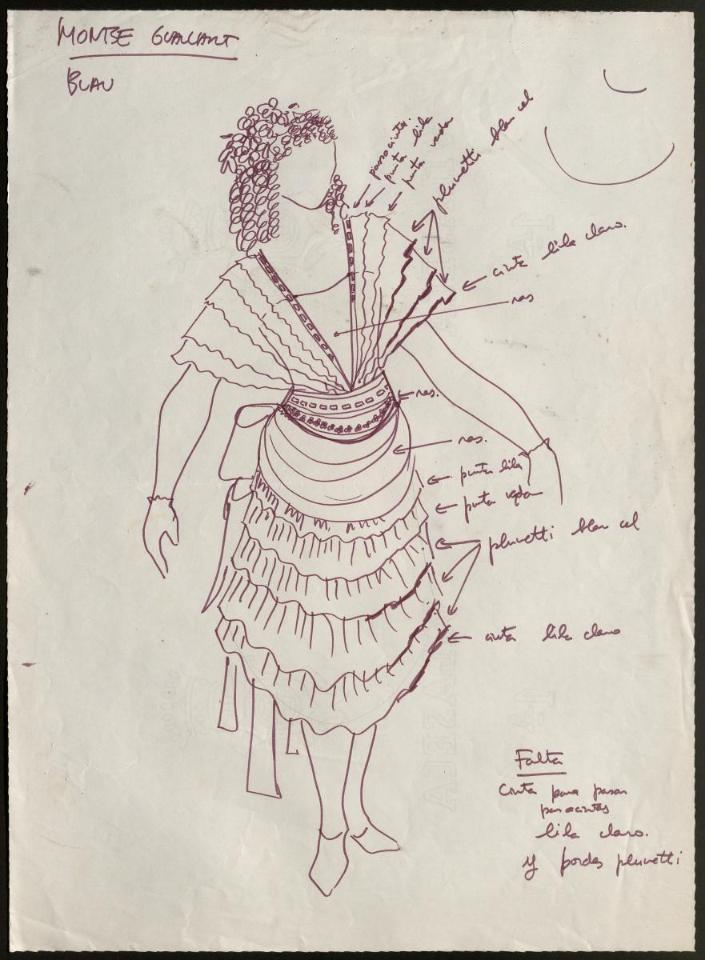 MONTSE GUALLART
BLAU
pasacintas.
punta lila
punta verda
plumetti blau cel
cinta lila claro.
ras
ras.
ras.
punta lila
punta verda
plumetti blau cel
cinta lila claro
Falta
Cinta para pasar
pasacintas
lila claro.
y bordes plumetti